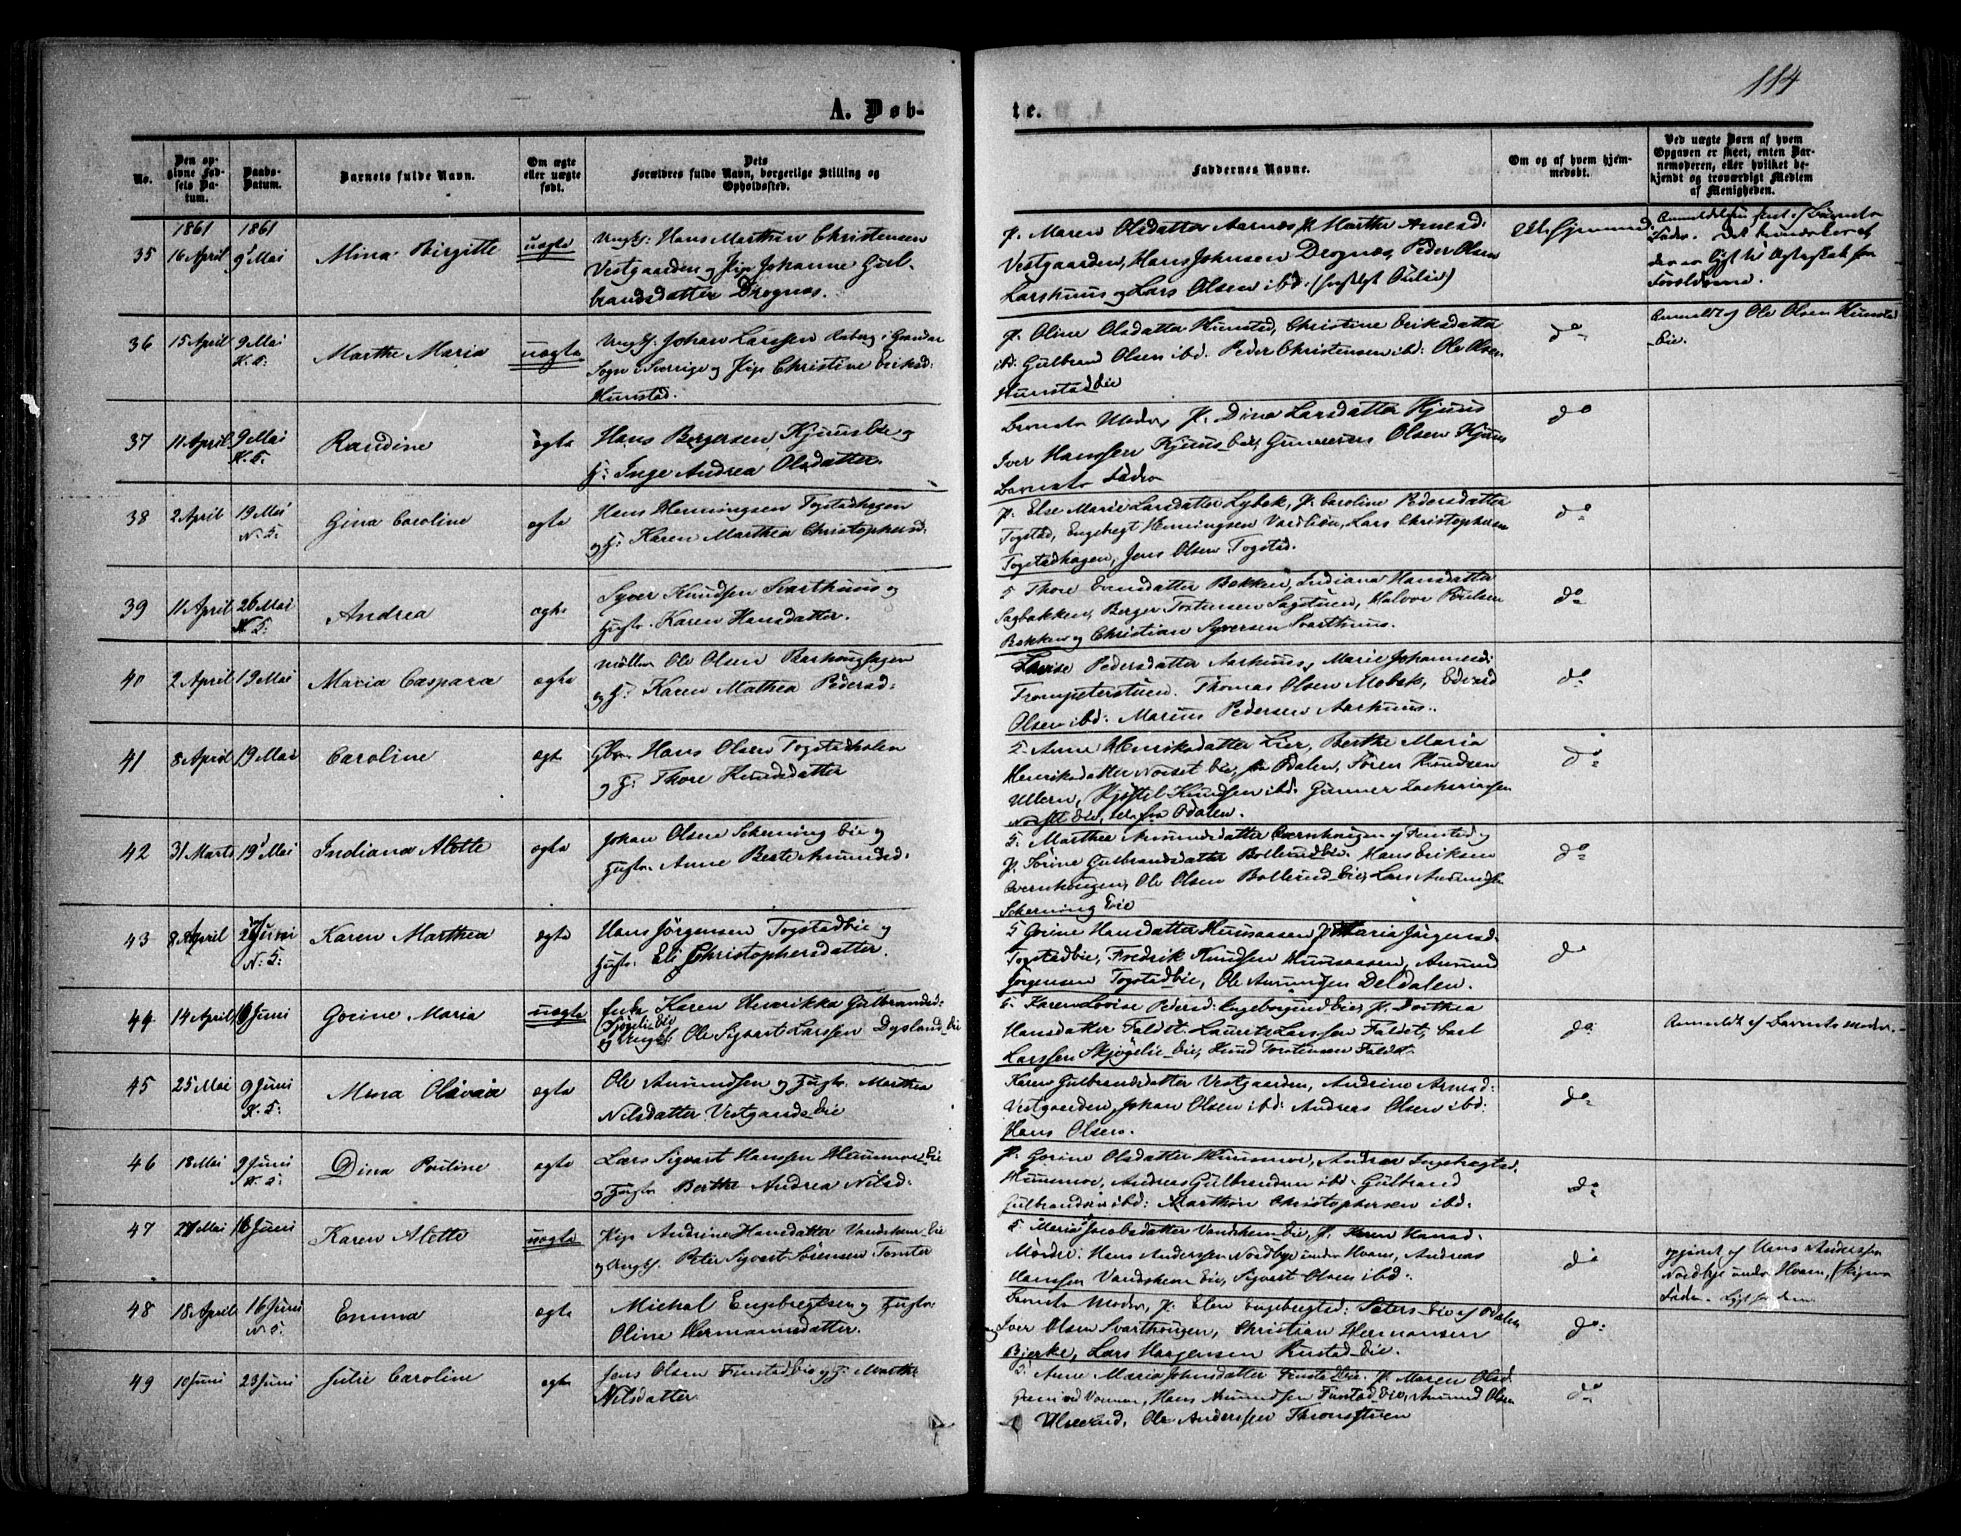 114
A. Døb-
te.
No.
Den op-
givne Fød-
sels Da-
tum.
Daabs-
Datum.
Barnets fulde Navn.
Om ægte
eller uægte
født.
Dets
Forældres fulde Navn, borgerlige Stilling og
Opholdssted.
Faddernes Navne.
Om og af hvem hjem-
medøbt.
Ved uægte Børn af hvem
Opgaven er skeet, enten Bar-
nemoderen, eller hvilket be-
kjendt og troværdigt Medlem
af Menigheden.
1861 1861
35 16 April 9 Mai Mina Birgitte uægte
Ungk: Hans Marthin Christensen
Vestgaarden og Pige Johanne Gul-
brandsdatter Drognæs.
P. Maren Olsdatter Aarnæs, P. Marthe Arnesd:
Vestgaarden, Hans Johnsen Drognæs, Peder Olsen
Larshuus og Lars Olsen ibd.
36 15 April 9 Mai Marthe Maria uægte
K. T:
Ungk: Johan Larssen
Sogn i Sverrige og Pige Christine Eriksd:
Hunstad.
P. Oline Olsdatter Hunstad, Christine Eriksdatter
ibd: Gulbrand Olsen ibd. Peder Christensen ibd: Ole Olsen
Hunstadeie
do
Anmeldt af Ole Olsen Hunstad
eie.
37 11 April 9 Mai Randine ægte
K. T:
Hans Bergersen Kjuuseie og
H: Inge Andrea Olsdatter.
Barnets Moder, P. Dina Larsdatter Kjuus
Iver Hanssen Kjuus eie, Gunerius Olsen Kjuus
Barnets Fader
do
38 2 April 19 Mai Gina Caroline ægte
N. S:
Hans Henningsen Togstadhagen
og H: Karen Marthea Christophersd:
P. Else Marie Larsdatter Lybek, P. Caroline Pedersdatter
Togstad, Engebregt Henningsen Vardlien, Lars Christophersen
Togstadhagen, Jens Olsen Togstad.
do
39 11 April 26 Mai Andrea ægte
N. S:
Syver Knudsen Svarthuus og
Hustr. Karen Hansdatter.
Thore Evensdatter Bakken, Indiana Hansdatter
Sagbakken, Berger Torstensen Sagstuen, Halvor Poulsen
Bakken og Christian Syversen Svarthuus.
do
40 2 April 19 Mai Maria Caspara ægte
Møller Ole Olsen Barhoughagen
og H: Karen Mathea Pedersd:
Lovise Pedersdatter Aarhuus, Marie Johannesd:
Trompeterstuen. Thomas Olsen Mobek, Edvard
Olsen ibd: Marius Pedersen Aarhuus.
do
41 8 April 19 Mai Caroline ægte
Gbr. Hans Olsen Togstadholen
og H: Thore Knudsdatter
Anne Henriksdatter Lier, Berthe Maria
Henriksdatter Norset eie, fra Odalen, Søren Knudsen
Ullern, Kjøstel Knudsen ibd: Gunner Zachariassen
do
42 31 Marts 19 Mai Indiana Alette ægte
Johan Olsen Skerning eie og
Hustr. Anne Beate Amundsd:
Marthea Amundsdatter Qvernhougen og
P. Sørine Gulbrandsdatter Bollerudeie. Hans Eriksen
Qvernhougen, Ole Olsen Bollerud eie, Lars Amundsen
Skerning Eie
do
43 8 April 2 Juni Karen Marthea ægte
N. S:
Hans Jørgensen Togstadeie og
Hustr. Eli Christophersdatter.
Gorine Hansdatter Huusaasen, P. Maria Jørgensd:
Togstadeie, Fredrik Knudsen Huusaasen, Amund
Jørgensen Togstadeie, Ole Amundsen Deldalen.
do
44 14 April 16 Juni Gorine Maria uægte
Enke Karen Henrikka Gulbrandsd:
og Ungk: Ole Sigvart Larssen Dysland eie
Karen Lovise Pedersd: Ingeborgrud eie, P. Dorthea
Hansdatter Faldt. Laurits Larssen Faldt, Carl
Larssen Skjøgelie eie, Knud Torstensen Faldt.
do
Anmeldt af Barnets moder.
45 25 Mai 9 Juni Mina Olavia ægte
K. T:
Ole Amundsen og Hustr. Marthea
Nilsdatter Vestgaards eie
Karen Gulbrandsdatter Vestgaarden, Andrine Arnesd:
Vestgaarden, Johan Olsen ibd: Andreas Olsen ibd:
Hans Olsen.
do
46 18 Mai 9 Juni Dina Pouline ægte
Lars Sigvart Hanssen Huusmoe eie
og Hustr. Berthe Andrea Nilsd:
P. Gorine Olsdatter Huusmoe, Andrea Ingebregtsd.
Huusmoe, Andreas Gulbrandsen ibd. Gulbrand
Gulbrandsen ibd: Marthin Christophersen ibd:
do
47 27 Mai 16 Juni Karen Alette uægte
Pige Andrine Hansdatter Vandshem eie
og Ungk. Peter Sigvart Sørensen Tomter
Maria Jacobsdatter Vandshem eie, P. Karen Hansd:
Mordre: Hans Anderssen Nordbye under Hvam, Andreas
Hanssen Vandshem eie, Sigvart Olsen ibd:
do
opgivet af Hans Anderssen
Nordbye under Hvam,
48 18 April 16 Juni Emma ægte
N. S:
Michal Engebregtsen og Hustr:
Oline Hermannsdatter.
Barnets Moder, P. Elen Engebregtsd: Sæters eie af Odalen
Iver Olsen Svarthougen, Christian Hermansen
Bjerke, Lars Hagensen Rustad eie.
do
49 10 Juni 23 Juni Julie Caroline ægte
Jens Olsen Funstad eie og H: Marthe
Nilsdatter
Anne Maria Johnsdatter Funstad eie. P. Maren Olsd.
Hans Amundsen Funstad eie, Amund Olsen
Ullerud, Ole Anderssen Thronstuen
do